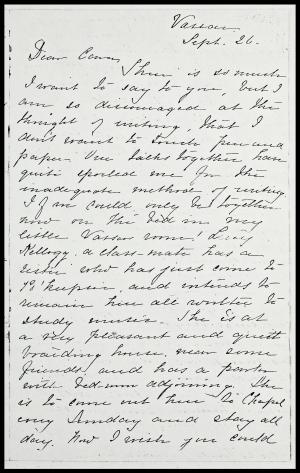 Vassar.
Sept. 26.
Dear Cora,
There is so much
I want to say to you, but I
am so discouraged at the
thought of writing, that I
don't want to touch pen and
paper. Our talks together have
quite spoiled me for the
inadequate method of writing.
If we could only be together
now on the bed in my
little Vassar room! Lucy
Kellogg, a class-mate has a
sister who has just come to
P'keepsie, and intends to
remain here all winter to
study music. She is at
a very pleasant and quiet
boarding house, near some
friends, and has a parlor
with bed-room adjoining. She
is to come out here to Chapel
every Sunday and stay all
day. Now I wish you could